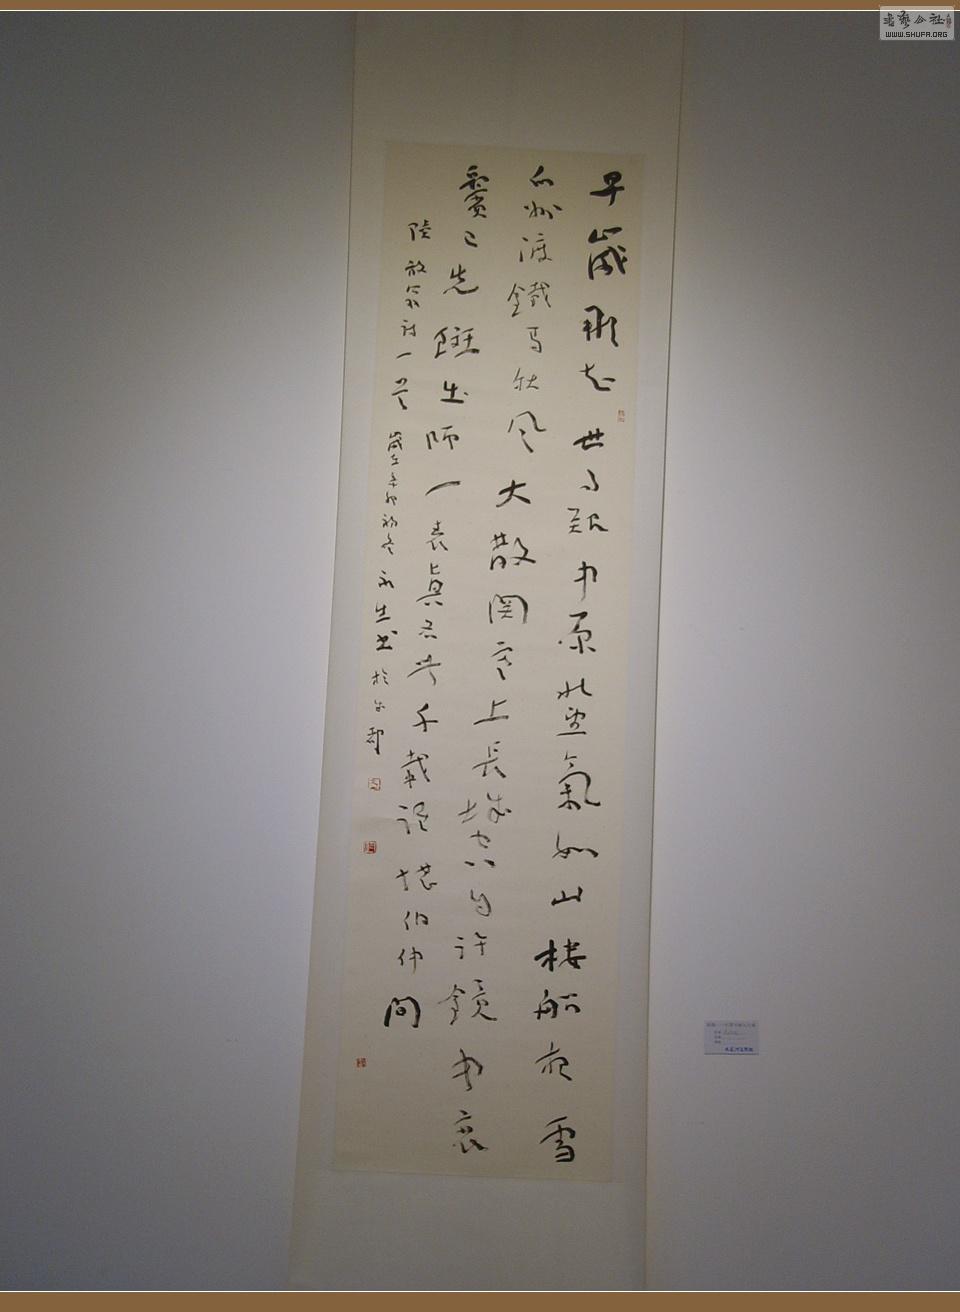 早歲那知世事艱中原北望氣如山楼船夜雪
瓜州渡鐵馬秋風大散関塞上長城空自許鏡中衰
鬢已先斑出師一表眞名世千載誰堪伯仲間
陸放翁詩一首
歲在辛卯初冬永生書於
书艺公社
WWW.SHUFA.ORG